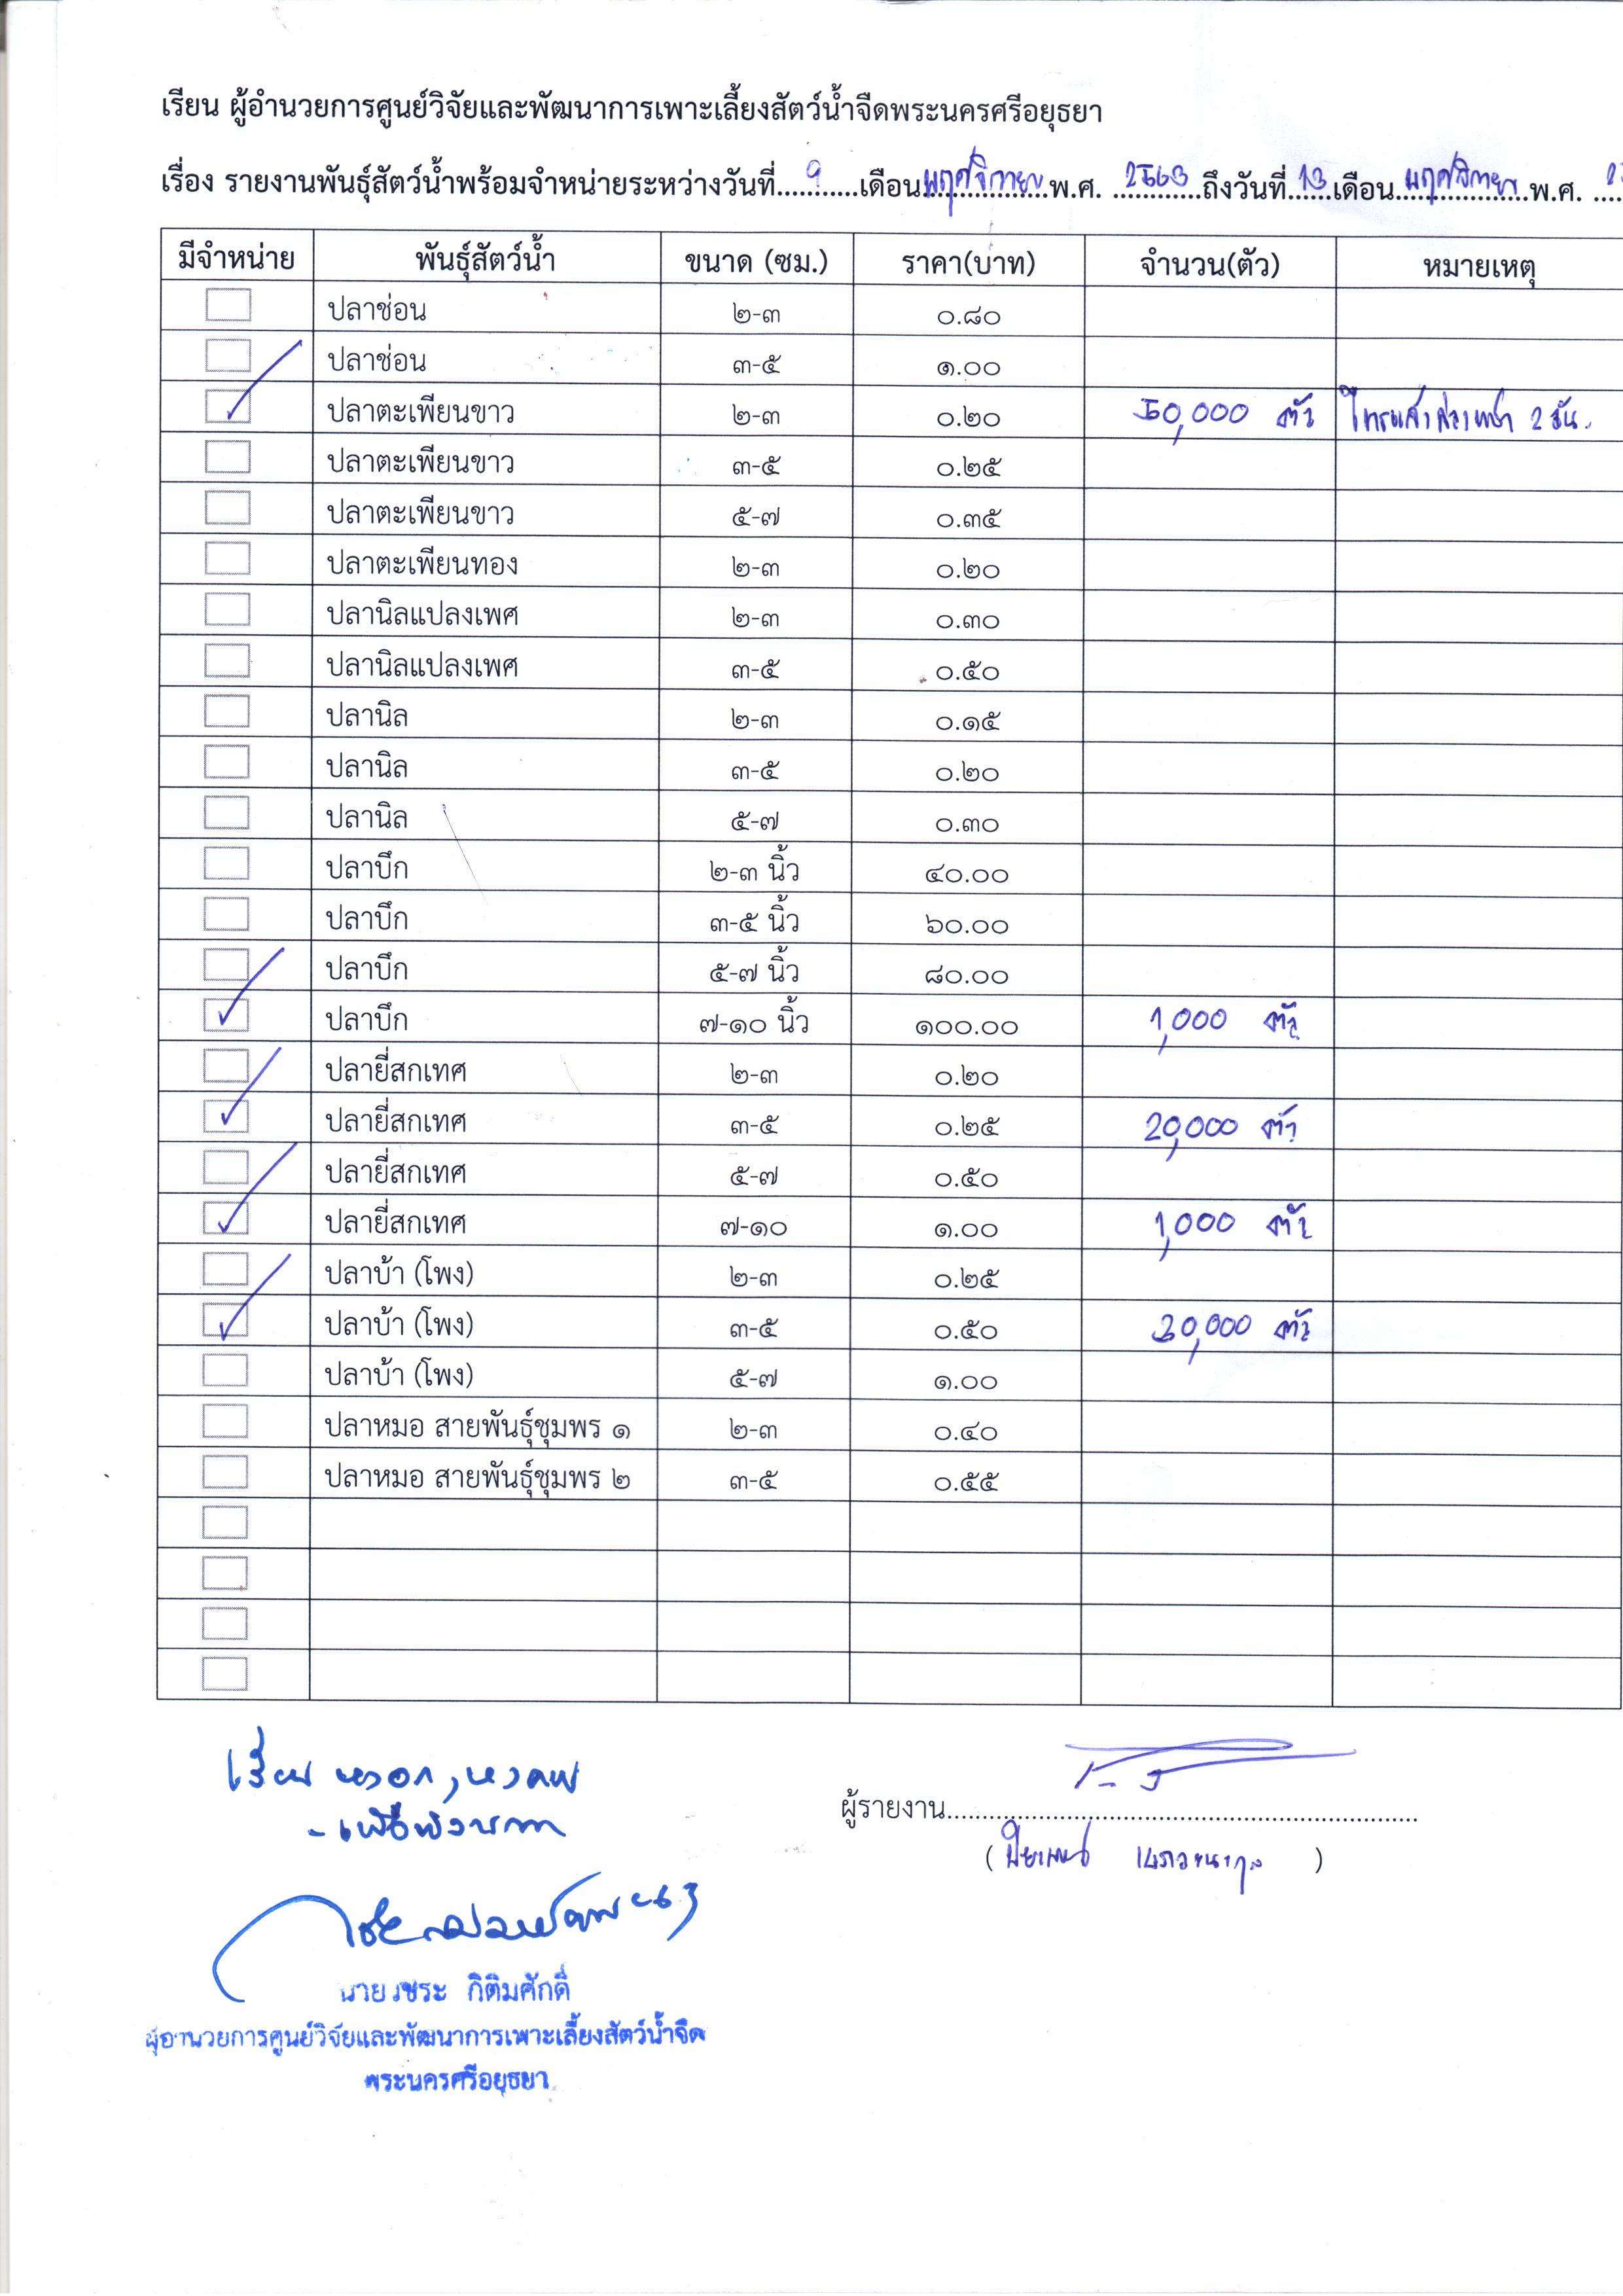 เรียน ผู้อำนวยการศูนย์วิจัยและพัฒนาการเพาะเลี้ยงสัตว์น้ำจืดพระนครศรีอยุธยา
เรื่อง รายงานพันธุ์สัตว์น้ำพร้อมจำหน่ายระหว่างวันที่ 9 เดือน พฤศจิกายน พ.ศ. 2563 ถึงวันที่ 13 เดือน พฤศจิกายน พ.ศ.
มีจำหน่าย พันธุ์สัตว์น้ำ ขนาด (ซม.) ราคา(บาท) จำนวน(ตัว) หมายเหตุ
ปลาช่อน ๒-๓ ๐.๘๐
ปลาช่อน ๓-๕ ๑.๐๐
ปลาตะเพียนขาว ๒-๓ ๐.๒๐ 50,000 ตัว โทรแจ้งล่วงหน้า 2 วัน.
ปลาตะเพียนขาว ๓-๕ ๐.๒๕
ปลาตะเพียนขาว ๕-๗ ๐.๓๕
ปลาตะเพียนทอง ๒-๓ ๐.๒๐
ปลานิลแปลงเพศ ๒-๓ ๐.๓๐
ปลานิลแปลงเพศ ๓-๕ ๐.๕๐
ปลานิล ๒-๓ ๐.๑๕
ปลานิล ๓-๕ ๐.๒๐
ปลานิล ๕-๗ ๐.๓๐
ปลาบึก ๒-๓ นิ้ว ๔๐.๐๐
ปลาบึก ๓-๕ นิ้ว ๖๐.๐๐
ปลาบึก ๕-๗ นิ้ว ๘๐.๐๐
ปลาบึก ๗-๑๐ นิ้ว ๑๐๐.๐๐ 1,000 ตัว
ปลายี่สกเทศ ๒-๓ ๐.๒๐
ปลายี่สกเทศ ๓-๕ ๐.๒๕ 20,000 ตัว
ปลายี่สกเทศ ๕-๗ ๐.๕๐
ปลายี่สกเทศ ๗-๑๐ ๑.๐๐ 1,000 ตัว
ปลาบ้า (โพง) ๒-๓ ๐.๒๕
ปลาบ้า (โพง) ๓-๕ ๐.๕๐ ตัว
ปลาบ้า (โพง) ๕-๗ ๑.๐๐
ปลาหมอ สายพันธุ์ชุมพร ๑ ๒-๓ ๐.๔๐
ปลาหมอ สายพันธุ์ชุมพร ๒ ๓-๕ ๐.๕๕
เรียน
- เพื่อพิจารณา
ผู้รายงาน
นายวชระ กิติมศักดิ์
ผู้อำนวยการศูนย์วิจัยและพัฒนาการเพาะเลี้ยงสัตว์น้ำจืด
พระนครศรีอยุธยา